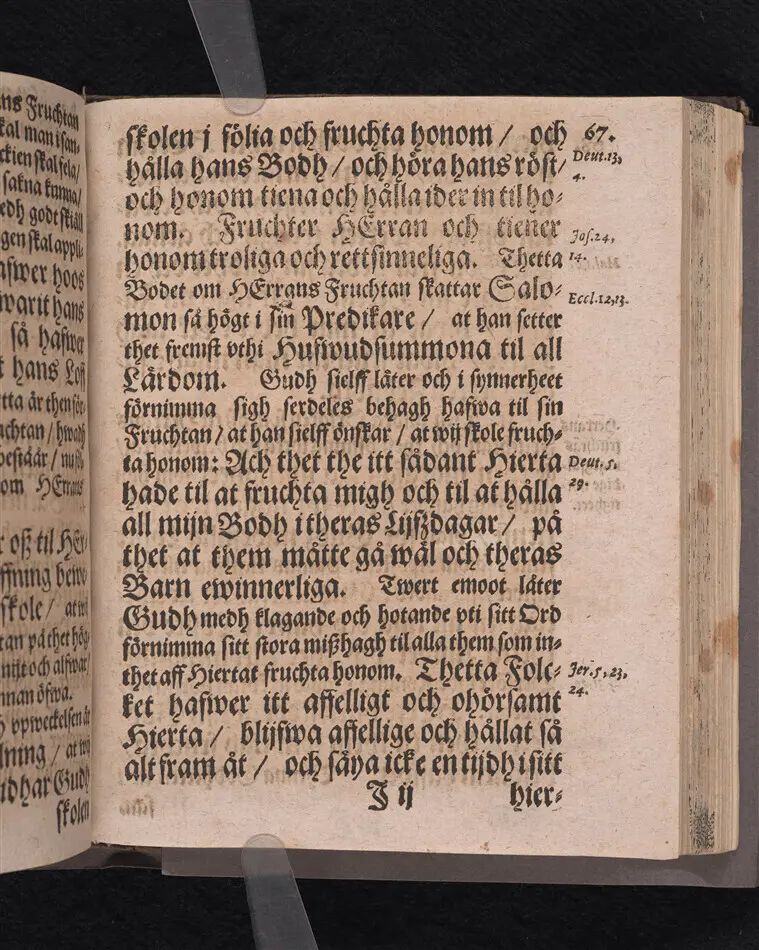 ns Fruchtan
kal man i san-
skal fela/
sakna kunna/
edh godt skiäl
gen skal appli-
afwer hoos
warit hans
så hafwer
t hans Loff
tta är then för-
chtan / hwadh
bestäår / nu
om HErrans
r oß til HEr-
ffning bewe-
skole / at wi
tan på thet hög-
nijt och alfwar
man öfwa.
upweckelsen är
lning / at wij
idhar Gudh
skolen
skolen j fölia och fruchta honom / och 67.
hålla hans Bodh / och höra hans röst/ Deut. 13,
och honom tiena och hålla ider in til ho- 4.
nom. Fruchter HErran och tiener Jos. 24,
honom troliga och rettsinneliga. Thetta 14.
Bodet om HErrans Fruchtan skattar Salo- Eccl. 12, 13.
mon så högt i sin Predikare / at han setter
thet fremst vthi Hufwudsummona til all
Lärdom. Gudh sielff låter och i synnerheet
förnimma sigh serdeles behagh hafwa til sin
Fruchtan / at han sielff önskar / at wij skole fruch-
ta honom: Ach thet the itt sådant Hierta Deut. 5.
hade til at fruchta migh och til at hålla 29.
all mijn Bodh i theras Lijfßdagar / på
thet at them måtte gå wäl och theras
Barn ewinnerliga. Twert emoot låter
Gudh medh klagande och hotande vti sitt Ord
förnimma sitt stora mißhagh til alla them som in-
thet aff Hiertat fruchta honom. Thetta Folc- Jer. 5, 23,
ket hafwer itt affelligt och ohörsamt 24.
Hierta / blijfwa affellige och hållat så
alt fram åt / och säya icke en tijdh i sitt
J ij hier-